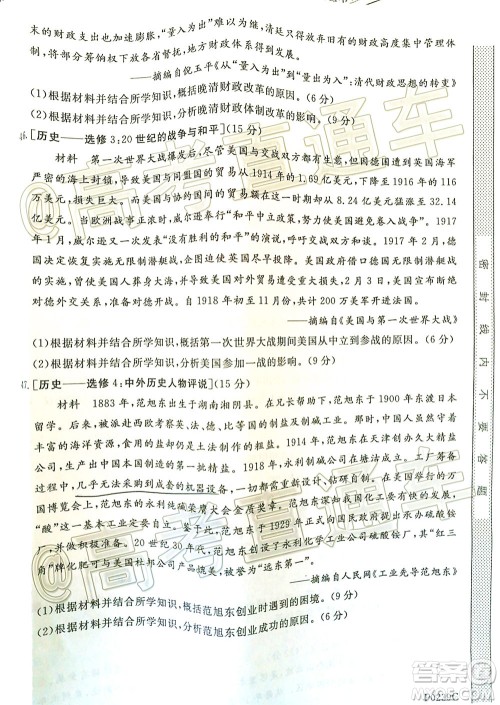 末的财政支出也加速膨胀，“量入为出”难以为继，清廷只得放弃旧有的财政高度集中管理体
制，将部分筹饷权下放各省督抚，地方财政空间逐渐形成。
——摘编自倪玉平《从“量入为出”到“量出为入”：清代财政思想的转变》
(1)根据材料并结合所学知识，概括晚清财政改革的原因。(6分)
(2)根据材料并结合所学知识，分析晚清财政体制改革的影响。(9分)
46.[历史——选修3：20世纪的战争与和平](15分)
材料　第一次世界大战爆发后，尽管美国与交战双方都有贸易往来，但因德国遭到英国海军
严格的海上封锁，导致美国与同盟国的贸易从1914年的1.69亿美元，下降至1916年的116
万美元，损失巨大。而美国与协约国的贸易额则从1914年的8.24亿美元猛涨至32.14
亿美元。当欧洲战事正浓时，威尔逊奉行“和平中立政策，努力使美国避免卷入战争”。1917
年1月，威尔逊又一次发表“没有胜利的和平”的演说，呼吁交战双方和谈。1917年2月，德国
决定恢复实施无限制潜艇战，以图使英国尽早投降。美国政府借口德国无限制潜艇战
的实施，曾致使美国人葬身大海，并对美国对外贸易遭受重大损失负有主要责任，宣布断绝
对德外交关系，准备对德开战。自1918年初至11月，共计200万美军开进法国。
——摘编自《美国与第一次世界大战》
(1)根据材料并结合所学知识，概括第一次世界大战期间美国从中立到参战的原因。(9分)
(2)根据材料并结合所学知识，分析美国参加一战的影响。(6分)
47.[历史——选修4：中外历史人物评说](15分)
材料　1883年，范旭东出生于湖南湘阴县。在兄长帮助下，范旭东于1900年东渡日本
留学。后来，被派赴西欧考察英、法、德、比等国的制盐及制碱工业。回国后，他看到当时
丰富的海洋资源，食用的却仍是土法制成的粗盐。1914年，范旭东在天津创办久大精盐
公司，生产出中国本国制造的第一批精盐。1917年，范旭东开始创建永利碱厂。工厂筹备
过程中，几乎无法采购到成套的机器设备，一切都需重新设计、钻研自制。在美国费城的万
国博览会上，范旭东的永利纯碱荣膺大会金质奖章。范旭东深知我国化工要自立必须发展
“酸”这一基本工业要素。范旭东于1929年正式向国民政府提出承办硫酸铵
厂，并做积极准备。20世纪30年代，范旭东创设了永利化学工业公司硫酸铵厂，其“红三
角”牌化肥可与美国杜邦公司产品统美，被赞为“远东第一”。
——摘编自人民网《工业先导范旭东》
(1)根据材料并结合所学知识，概括范旭东创业时遇到的困境。(6分)
(2)根据材料并结合所学知识，分析范旭东创业成功的原因。(9分)
密封线内不要答题
高考直通车
高考直通车
答案圈
D0229C